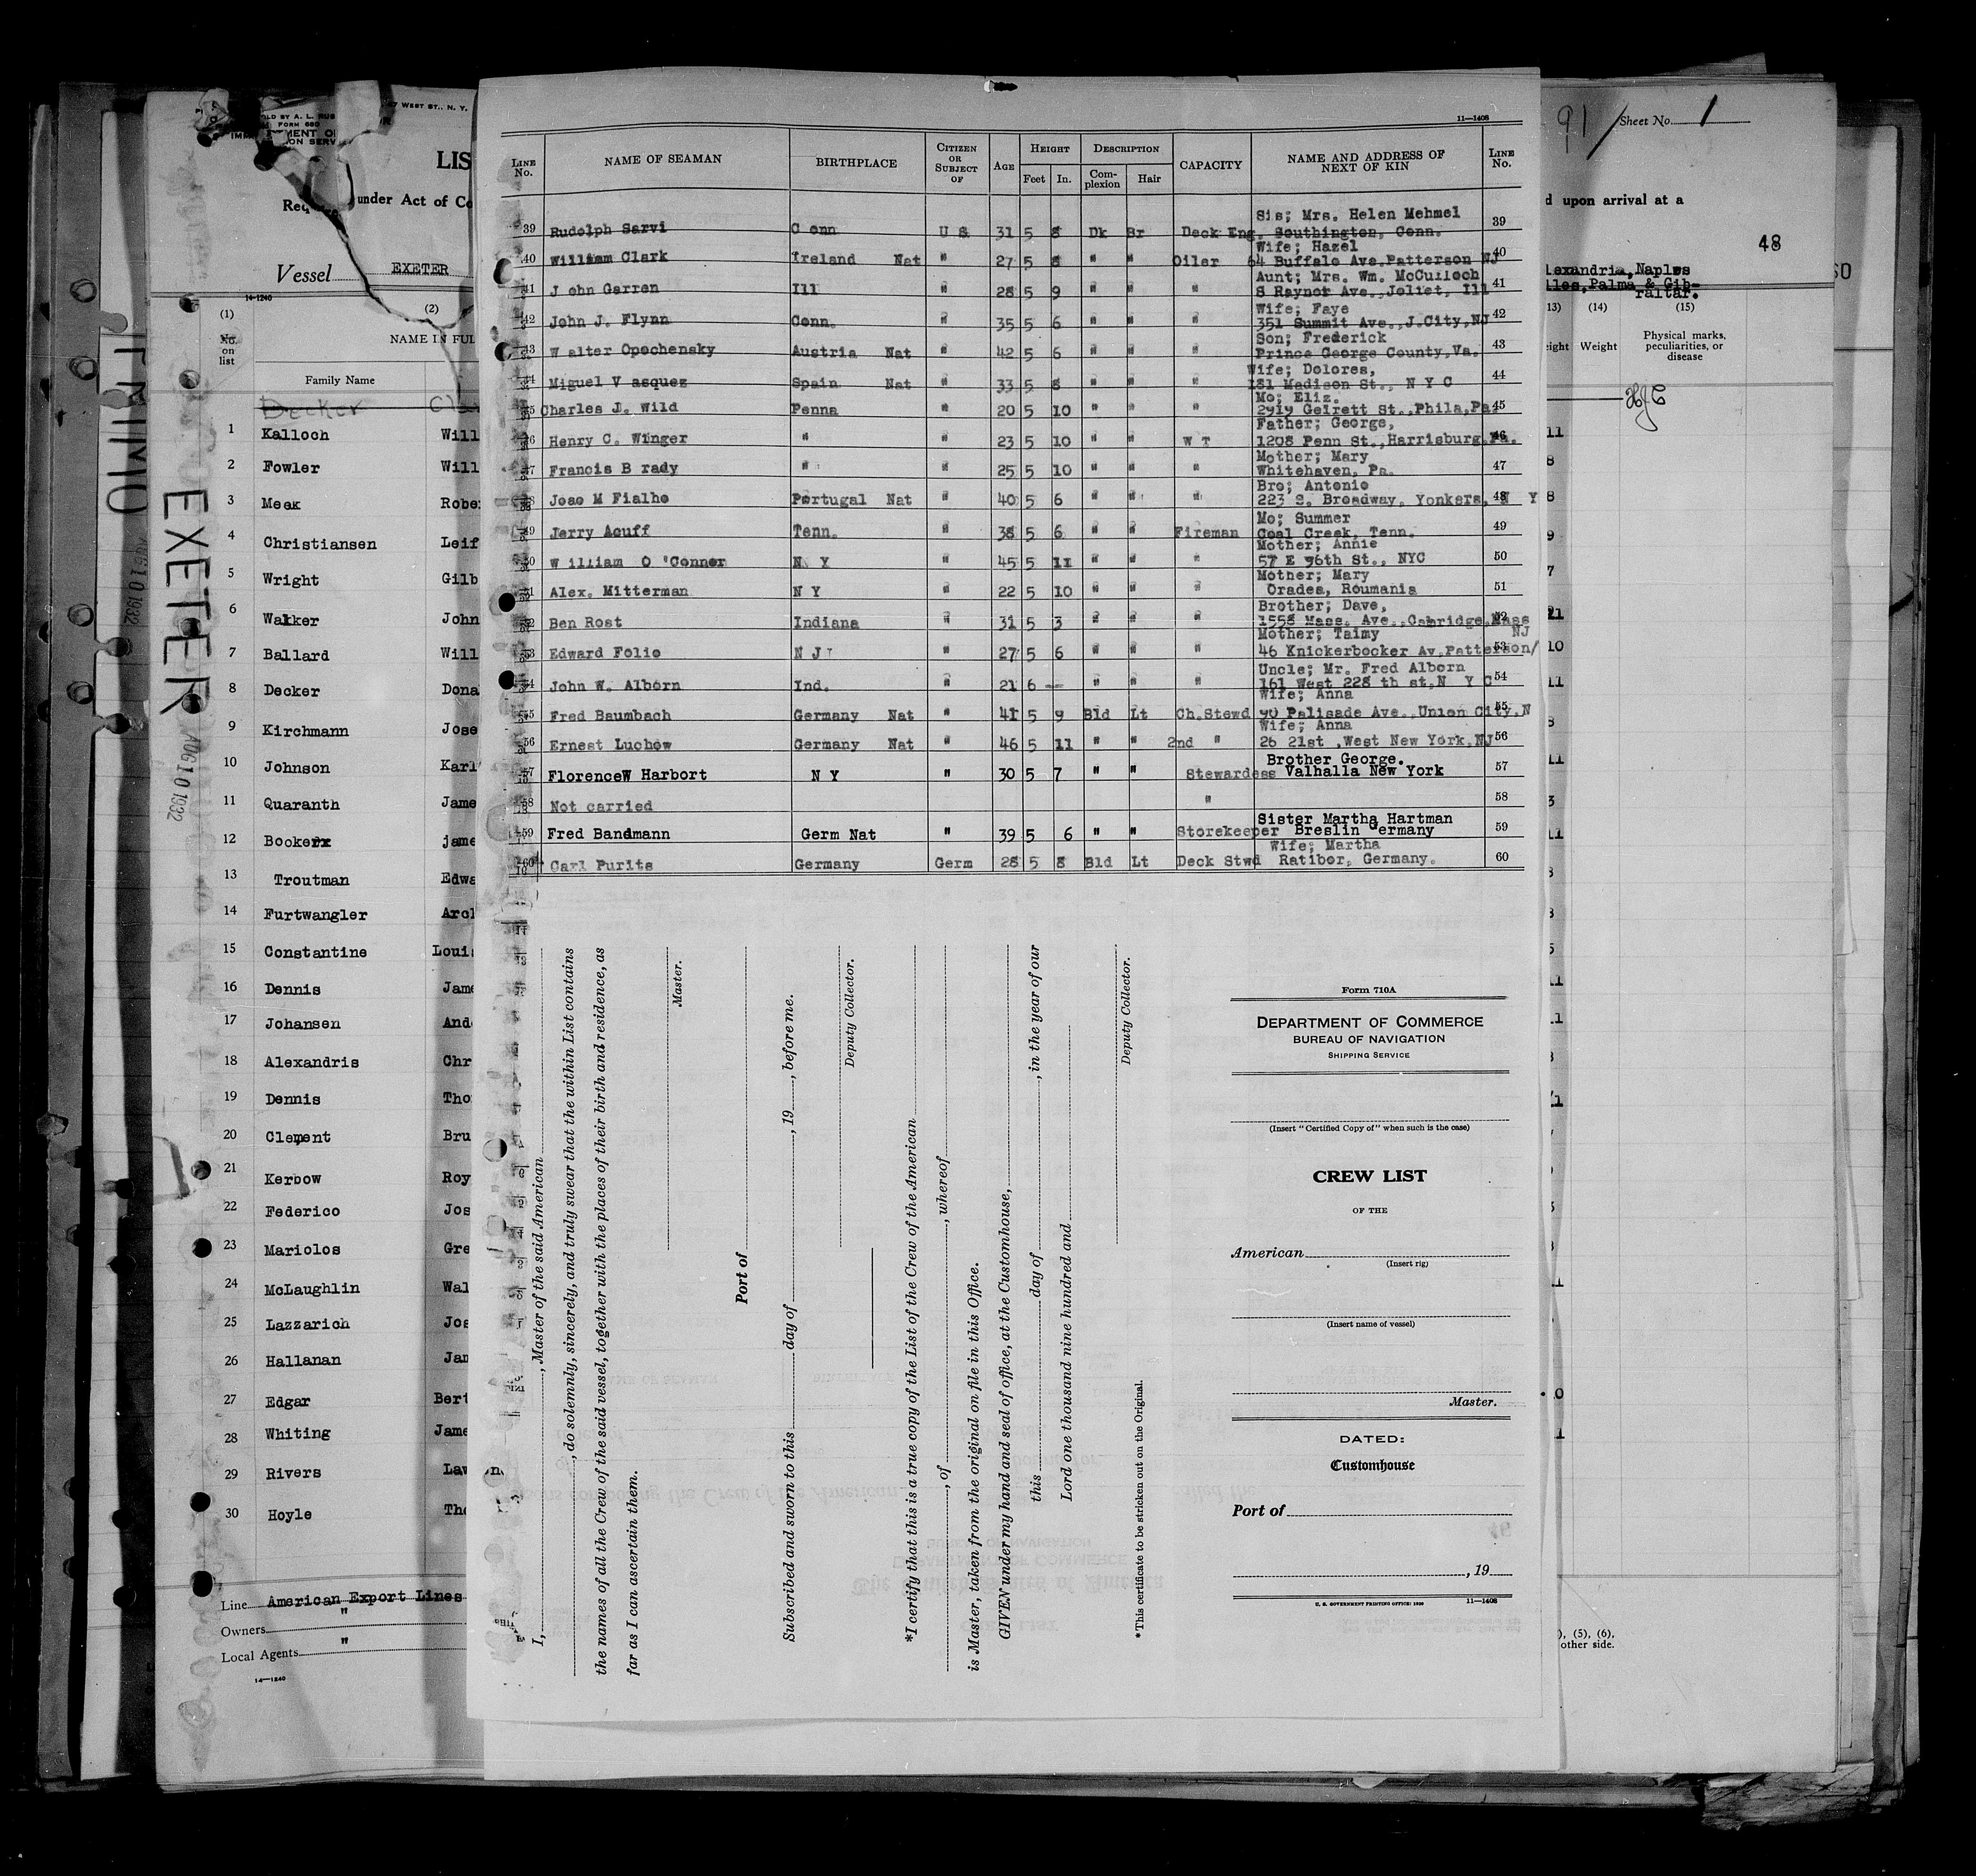 11—1408
LINE No.
NAME OF SEAMAN
BIRTHPLACE
CITIZEN OR SUBJECT OF
AGE
HEIGHT
Feet In.
DESCRIPTION
Com-plexion Hair
CAPACITY
NAME AND ADDRESS OF NEXT OF KIN
LINE No.
Sis; Mrs. Helen Mehmel
39 Rudolph Sarvi C onn U S 31 5 8 Dk Br Deck Eng. Southington, Conn. 39
Wife; Hazel
40 William Clark Ireland Nat " 27 5 8 " " Oiler 64 Buffalo Ave.Patterson NJ 40
Aunt; Mrs. Wm. McCulloch
41 J ohn Garren Ill " 28 5 9 " " " S Raynor Ave.,Joliet, Ill 41
Wife; Faye
42 John J. Flynn Conn. " 35 5 6 " " " 351 Summit Ave.,J.City,NJ 42
Son; Frederick
43 W alter Opochensky Austria Nat " 42 5 6 " " " Prince George County,Va. 43
Wife; Dolores,
44 Miguel V asquez Spain Nat " 33 5 8 " " " 181 Madison St., N Y C 44
Mo; Eliz.
45 Charles J. Wild Penna " 20 5 10 " " " 2919 Gelrett St.,Phila,Pa. 45
Father; George,
46 Henry C. Winger " " 23 5 10 " " W T 1208 Penn St.,Harrisburg,Pa. 46
Mother; Mary
47 Francis B rady " " 25 5 10 " " " Whitehaven, Pa. 47
Bro; Antonio
48 Joao M Fialho Portugal Nat " 40 5 6 " " " 223 S. Broadway, Yonkers, N Y 48
Mo; Summer
49 Jerry Acuff Tenn. " 38 5 6 " " Fireman Coal Creek, Tenn. 49
Mother; Annie
50 W illiam O 'Conner N Y " 45 5 11 " " " 57 E 96th St., NYC 50
Mother; Mary
51 Alex. Mitterman N Y " 22 5 10 " " " Oradea, Roumania 51
Brother; Dave,
52 Ben Rost Indiana " 31 5 3 " " " 1558 Mass. Ave.,Cabridge,Mass 52
Mother; Taimy NJ
53 Edward Folio N J " 27 5 6 " " " 46 Knickerbocker Av,Patterson/ 53
Uncle; Mr. Fred Alborn
54 John W. Alborn Ind. " 21 6 — " " " 161 West 228 th st,N Y C 54
Wife; Anna
55 Fred Baumbach Germany Nat " 41 5 9 Bld Lt Ch.Stewd 90 Palisade Ave.,Union City,N 55
Wife; Anna
56 Ernest Luchow Germany Nat " 46 5 11 " " 2nd " 26 21st ,West New York,NJ 56
Brother George.
57 FlorenceW Harbort N Y " 30 5 7 " " Stewardess Valhalla New York 57
58 Not carried " 58
Sister Martha Hartman
59 Fred Bandmann Germ Nat " 39 5 6 " " Storekeeper Breslin Germany 59
Wife; Martha
60 Carl Purits Germany Germ 28 5 8 Bld Lt Deck Stwd Ratibor, Germany. 60
I, , Master of the said American
, do solemnly, sincerely, and truly swear that the within List contains
the names of all the Crew of the said vessel, together with the places of their birth and residence, as
far as I can ascertain them.
Master.
Port of
Subscribed and sworn to this day of , 19 , before me.
Deputy Collector.
*I certify that this is a true copy of the List of the Crew of the American
, of , whereof
is Master, taken from the original on file in this Office.
GIVEN under my hand and seal of office, at the Customhouse,
this day of , in the year of our
Lord one thousand nine hundred and
Deputy Collector.
*This certificate to be stricken out on the Original.
Form 710A
DEPARTMENT OF COMMERCE
BUREAU OF NAVIGATION
SHIPPING SERVICE
(Insert "Certified Copy of" when such is the case)
CREW LIST
OF THE
American
(Insert rig)
(Insert name of vessel)
Master.
DATED:
Customhouse
Port of
, 19
U. S. GOVERNMENT PRINTING OFFICE: 1930 11—1408
EXETER
AUG 10 1932
AUG 10 1932
7 WEST ST., N. Y.
LD BY A. L. RUS
FORM 680
LIS
under Act of Co
Vessel EXETER
14-1240
(1) (2)
No. on list
NAME IN FUL
Family Name
Decker
1 Kalloch Will
2 Fowler Will
3 Meek Robe
4 Christiansen Leif
5 Wright Gilb
6 Walker John
7 Ballard Will
8 Decker Dona
9 Kirchmann Jose
10 Johnson Karl
11 Quaranth Jame
12 Bookerx jame
13 Troutman Edwa
14 Furtwangler Arc
15 Constantine Loui
16 Dennis Jame
17 Johansen And
18 Alexandris Chr
19 Dennis Tho
20 Clement Bru
21 Kerbow Roy
22 Federico Jos
23 Mariolos Gre
24 McLaughlin Wal
25 Lazzarich Jos
26 Hallanan Jam
27 Edgar Bert
28 Whiting Jame
29 Rivers Law
30 Hoyle Tho
Line American Export Lines
Owners "
Local Agents "
14—1240
91/ Sheet No. 1
d upon arrival at a
48
lexandria,Naples
lles,Palma & Gib-
raltar.
13) (14) (15)
eight Weight
Physical marks, peculiarities, or disease
), (5), (6),
other side.